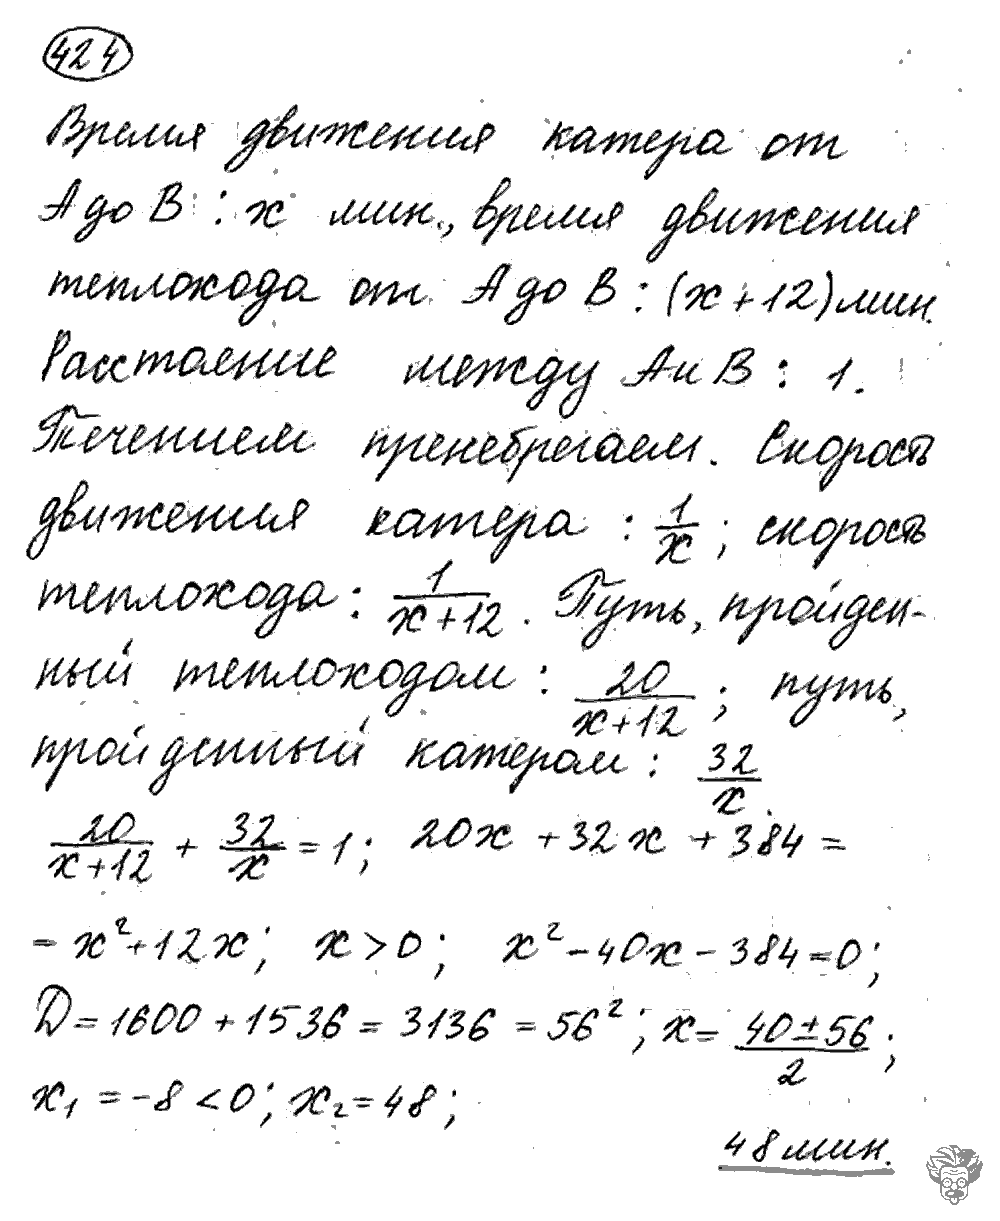 424
Время движения катера от
А до В : x мин., время движения
теплохода от А до В : (x + 12) мин.
Расстояние между А и В : 1.
Течением пренебрегаем. Скорость
движения катера : 1/x ; скорость
теплохода : 1/(x+12) . Путь, пройден-
ный теплоходом : 20/(x+12) ; путь,
пройденный катером : 32/x .
20/(x+12) + 32/x = 1 ; 20x + 32x + 384 =
= x² + 12x ; x > 0 ; x² - 40x - 384 = 0 ;
D = 1600 + 1536 = 3136 = 56² ; x = (40 ± 56)/2 ;
x₁ = -8 < 0 ; x₂ = 48 ;
48 мин.